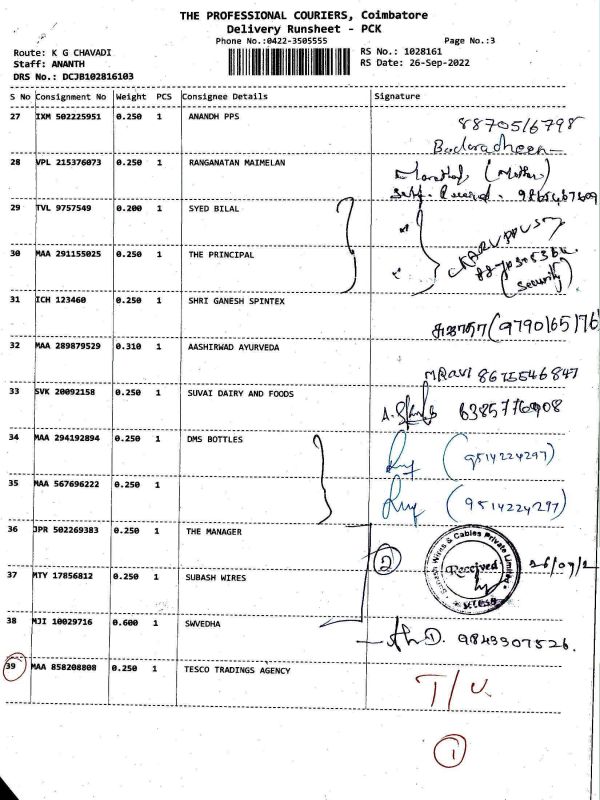 THE PROFESSIONAL COURIERS, Coimbatore
Delivery Runsheet - PCK
Phone No.:0422-3505555 Page No.:3
Route: K G CHAVADI RS No.: 1028161
Staff: ANANTH RS Date: 26-Sep-2022
DRS No.: DCJB102816103
S No Consignment No Weight PCS Consignee Details Signature
27 IXM 502225951 0.250 1 ANANDH PPS 8870516798
Badaradheen
28 VPL 215376073 0.250 1 RANGANATAN MAIMELAN (Mother)
29 TVL 9757549 0.200 1 SYED BILAL
30 MAA 291155025 0.250 1 THE PRINCIPAL
(Security)
31 ICH 123460 0.250 1 SHRI GANESH SPINTEX
(9790165176
32 MAA 289879529 0.310 1 AASHIRWAD AYURVEDA
MRavi 8675546847
33 SVK 20092158 0.250 1 SUVAI DAIRY AND FOODS
6385776908
34 MAA 294192894 0.250 1 DMS BOTTLES (9514224297)
35 MAA 567696222 0.250 1 (9514224297)
36 JPR 502269383 0.250 1 THE MANAGER
2 Subash Wires & Cables Private Limited Received 26/09/2
37 MTY 17856812 0.250 1 SUBASH WIRES
38 MJI 10029716 0.600 1 SWVEDHA
9843307526.
39 MAA 858208808 0.250 1 TESCO TRADINGS AGENCY
T/U
1